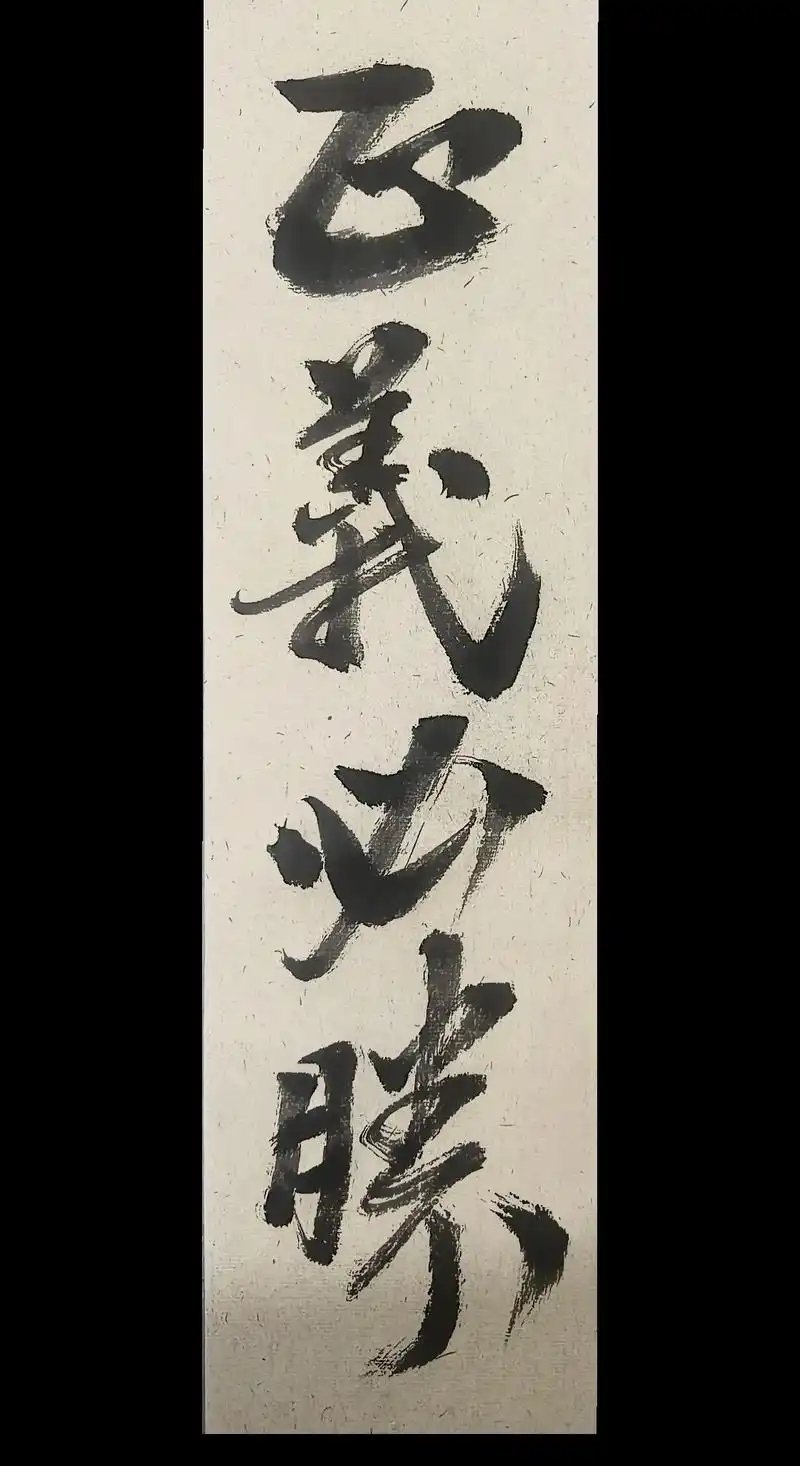 正義必勝